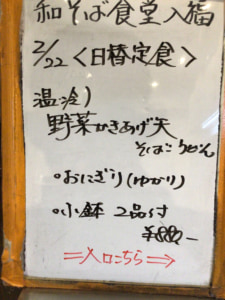 和そば食堂入福
2/22 <日替定食>
温冷)
野菜かきあげ天
そば:うどん
・おにぎり(ゆかり)
・小鉢 2品付
¥880-
⇒入口こちら→